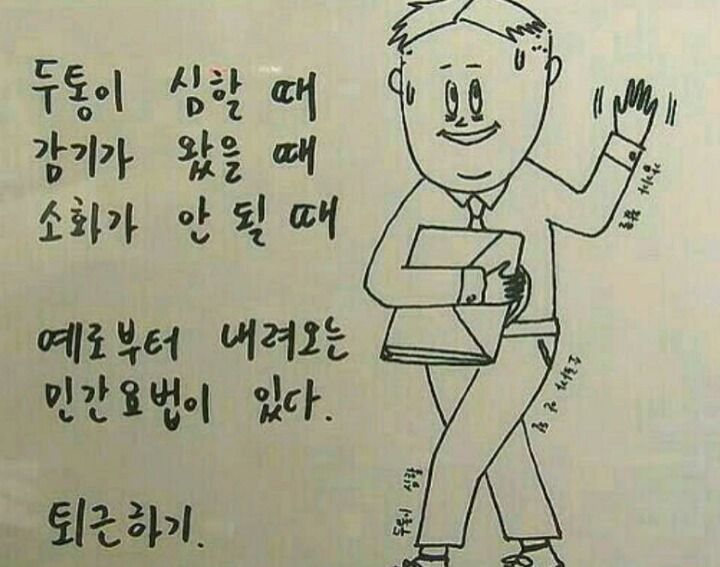 두통이 심할 때
감기가 왔을 때
소화가 안 될 때
예로부터 내려오는
민간요법이 있다.
퇴근하기.
두통이 심함